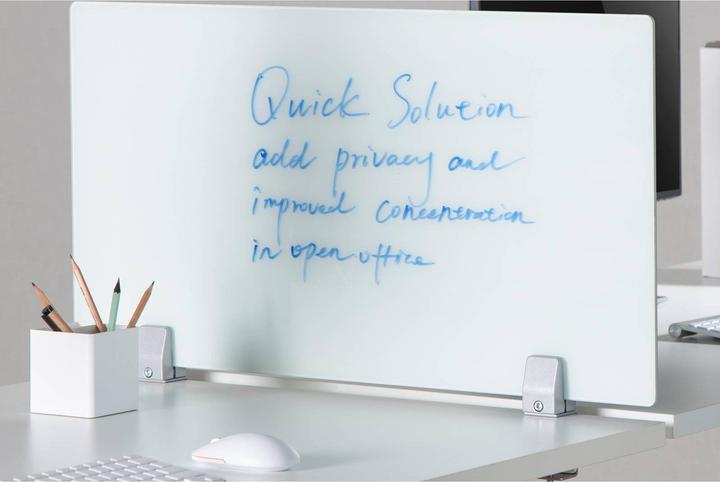 Quick Solution
add privacy and
improved concentration
in open office